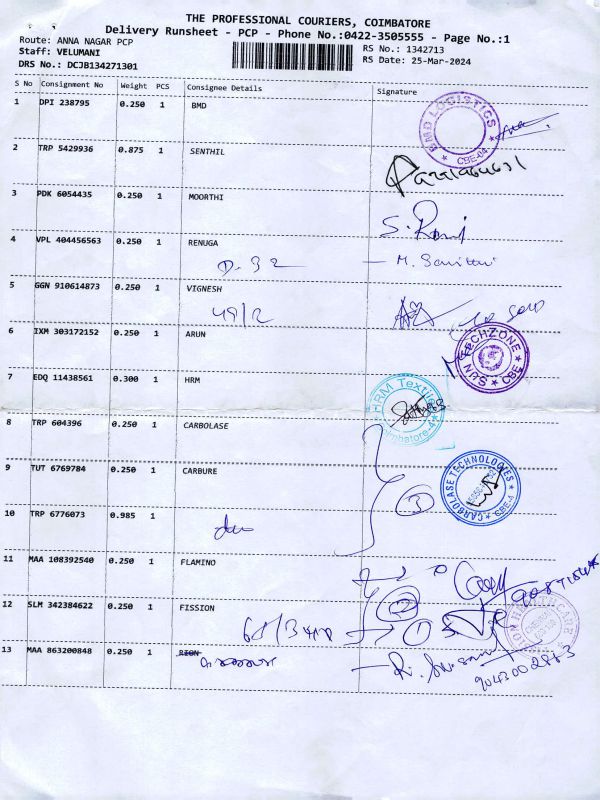 THE PROFESSIONAL COURIERS, COIMBATORE
Delivery Runsheet - PCP - Phone No.:0422-3505555 - Page No.:1
Route: ANNA NAGAR PCP
RS No.: 1342713
Staff: VELUMANI
RS Date: 25-Mar-2024
DRS No.: DCJB134271301
S No Consignment No Weight PCS Consignee Details Signature
1 DPI 238795 0.250 1 BMD
BMD LOGISTICS CBE-04
2 TRP 5429936 0.875 1 SENTHIL
3 PDK 6054435 0.250 1 MOORTHI
4 VPL 404456563 0.250 1 RENUGA
D-32
5 GGN 910614873 0.250 1 VIGNESH
49/2
6 IXM 303172152 0.250 1 ARUN
TECHZONE CBE
7 EDQ 11438561 0.300 1 HRM
HRM Textile Coimbatore-4
8 TRP 604396 0.250 1 CARBOLASE
9 TUT 6769784 0.250 1 CARBURE
CARBOLASE TECHNOLOGIES CBE-4
3
10 TRP 6776073 0.985 1
11 MAA 108392540 0.250 1 FLAMINO
12 SLM 342384622 0.250 1 FISSION
2
13 MAA 863200848 0.250 1 RION